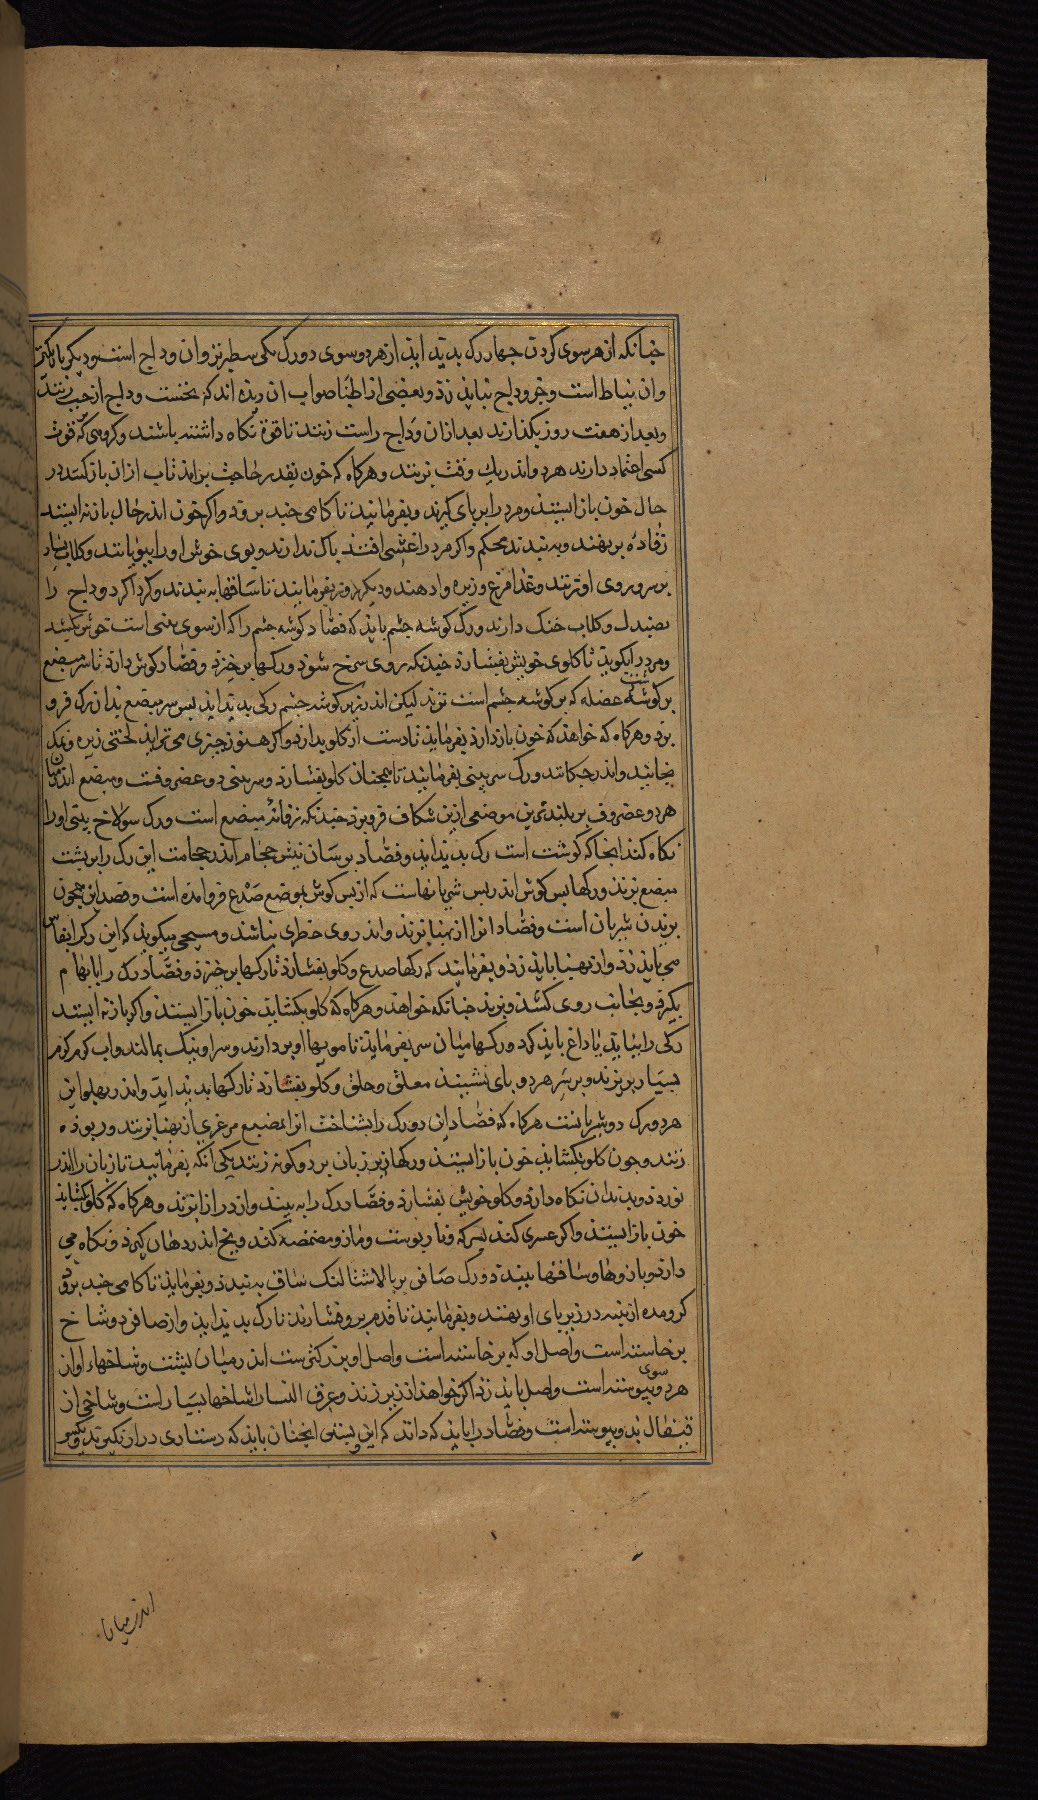 جنانکه از هر سوی کردن جهار رک بدید اید از هر دو سوی دو رک یکی سطبرتر وان وداج است ودیکر باریکتر
وان بنباط است وجز وداج نباید زد وبعضی از اطبا صواب ان دیده اند که نخست وداج از جب زنند
وبعد از هفت روز بکذارند بعد ازان وداج راست زنند تا قوة نکاه داشته باشند وکروهی که قوت
کسی اعتماد دارند هردو اندر یك وقت بزنند وهرکاه که خون بقدر حاجت براند تاب ازان بازکشد در
حال خون باز ایستد ومرد را بر پای کیرند وبفرمایند تا کامی جند برود واکر خون اندر حال باز نه ایستد
رفاده بر نهند وبه بندند محکم واکر مرد را غشی افتد باک ندارند وبوی خوش اورا ببویانند وکلاب
بر سر وروی او زنند وغذا مزغ وزیره وا دهند ودیکر روز بفرمایند تا ساقها به بندند وکرد اکرد وداج را
بصندل وکلاب خنک دارند ورک کوشه جشم باید که فصاد کوشه جشم را که از سوی بینی است خوش بکشد
ومرد را بکوید تا کلوی خویش بفشارد جندانکه روی سرخ شود ورکها بر خیزد وفصاد کوش دارد تا سر مبضع
بر کوشه عضله که بر کوشه جشم است نزند لیکن اندر زیر کوشه جشم رکی بدید اید بس سر مبضع بدان رک فرو
برد وهرکاه که خواهد که خون باز دارد بفرماید تا دست از کلو بدارد واکر هنوز جیزی می تراید لختی زیره ونمک
بخایند واندر جکانند ورک سر بینی بفرمایند تا همجنان کلو بفشارد وسر بینی دو غضروفست ومبضع اندر میان
هر دو غضروف بر بلندترین موضعی ازین شکاف فرو برد جندانکه نرفاند مبضع است ورک سولاخ بینی اورا
نکاه کند انجا که کوشت است رک بدید اید وفصاد بر سان نیش حجام اندر حجامت این رک را بر بشت
مبضع بزند ورکها بس کوش اندر بس شریانهاست که از بس کوش بموضع صدغ فرو امده است وقصد این همجون
بریدن شریان است وفصاد انرا از بهنا بزند واندر وی خطری نباشد ومسیحی میکوید که این رک را بقاس
می باید زد واز بهنا باید زد وبفرمایند که رکها صدغ وکلو بفشارد تا رکها بر خیزد وفصاد رک را بابهام
بکیرد وبجانب روی کشد وبزند جنانکه خواهد وهرکاه که کلو بکشاید خون باز ایستد واکر باز نه ایستد
رکی را بباید یا داغ باید کرد ورکها میان سر بفرماید تا مویها او بردارند وسر او نیک بمالند واب کرم کرم
بسیار بریزند وبر سر هر دو بای نشیند معلق وحلق وکلو بفشارد تا رکها بدید اید واندر بهلو این
هر دو رک دو شریانست هرکاه که فصاد این دو رک را بشناخت انرا بمضیع مرغری از بهنا بزنند وربوده
زنند وجون کلو بکشاید خون باز ایستد ورکها زیر زبان بر دو کونه زنند یکی انکه بفرمایند تا زبان را اندر
نوردد وبدندان نکاه دارد وکلو خویش بفشارد وفصاد رک را به بیند واز دراز بزند وهرکاه که کلو بکشاید
خون باز ایستد واکر عسری کند بسرکه ونار بوست ومازو مضمضه کند ویخ اندر دهان کیرد ونکاه می
دارد وبازوها وساقها ببندد ورک صافن بر بالا شتالنک ساق به بندد وبفرماید تا کامی جند برود
کروهه از بنبه در زیر بای او نهند وبفرمایند تا قدم برو فشارند تا رک بدید اید واز صافن دو شاخ
برخاستند است واصل او که برخاسته است واصل او بزرکترست اندر میان بشت وشاخهاء او از
هر دو سوی بیوسته است واصل باید زد اکر خواهد از زیر زند وعرق النسا را شاخها بسیار است وشاخی از
قیفال بدو بیوسته است وفصاد را باید که داند که این بستن انجنان باید که دستاری دراز بکیرند ویکسو
اندر میان